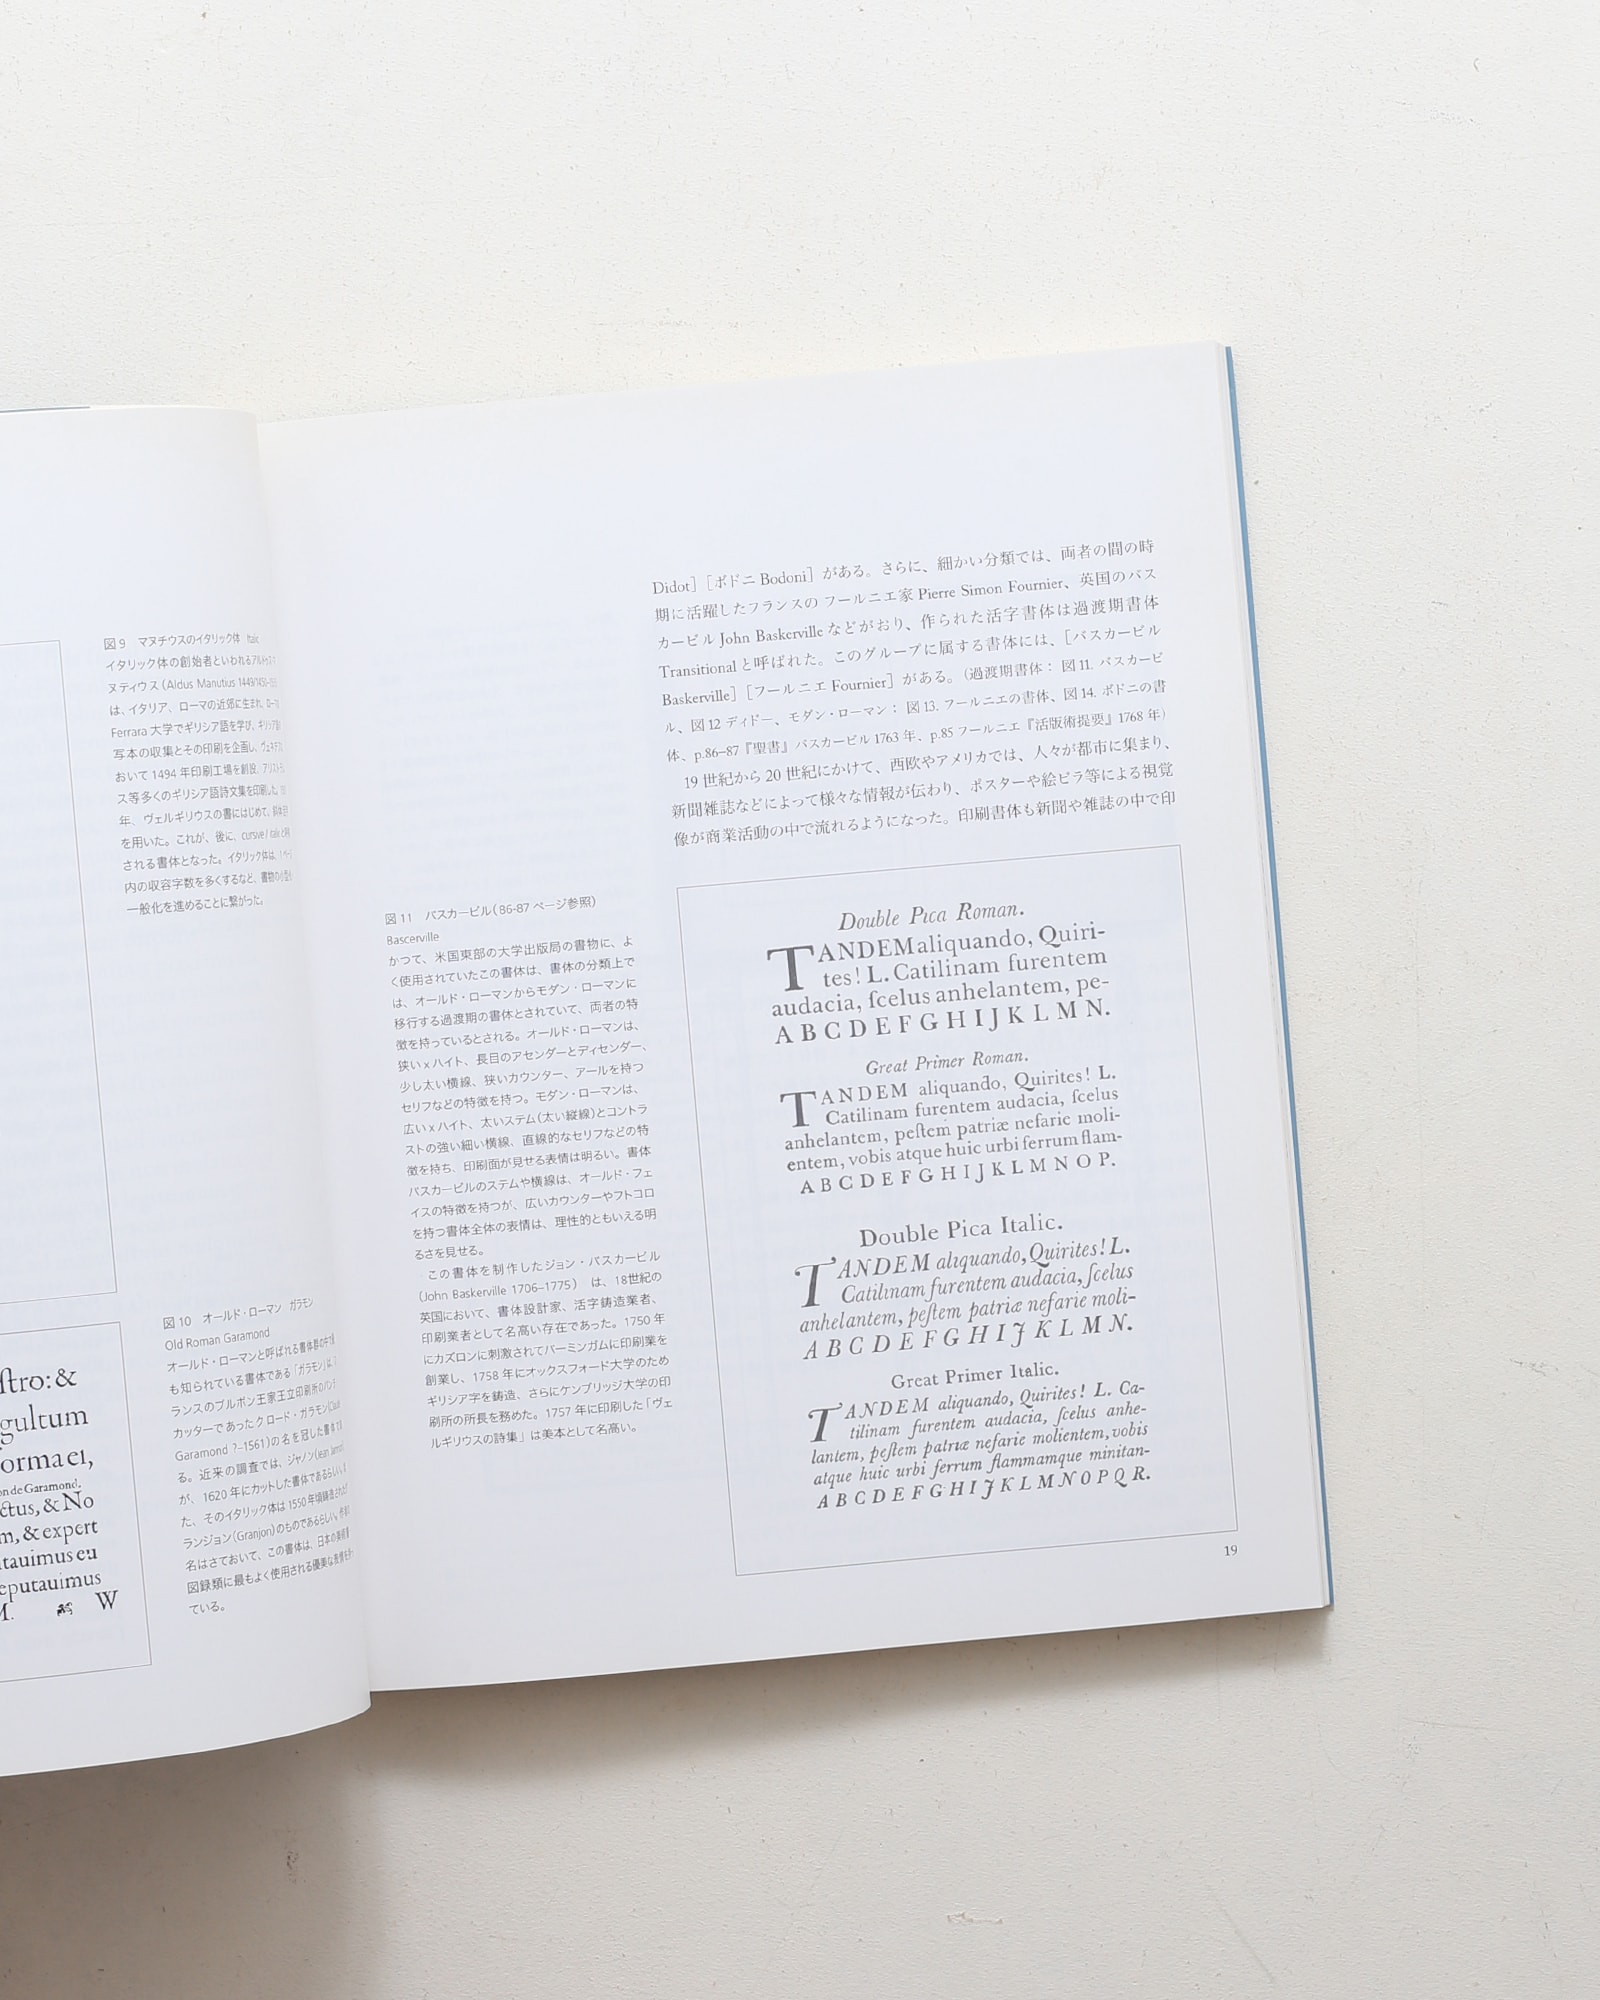 図9　マヌチウスのイタリック体　Italic
イタリック体の創始者といわれるアルドゥス・マ
ヌティウス（Aldus Manutius 1449/1450-
は、イタリア、ローマの近郊に生まれ、
Ferrara 大学でギリシア語を学び、ギリシア
写本の収集とその印刷を企画し、ヴェネチ
おいて 1494 年印刷工場を創設、アリスト
ス等多くのギリシア語詩文集を印刷した。
年、ヴェルギリウスの書にはじめて、斜体
を用いた。これが、後に、cursive / italic と
される書体となった。イタリック体は、1ペー
内の収容字数を多くするなど、書物の小型
一般化を進めることに繋がった。
図10　オールド・ローマン　ガラモン
Old Roman Garamond
オールド・ローマンと呼ばれる書体群の中で
も知られている書体である「ガラモン」は、
ランスのブルボン王家王立印刷所のパンチ
カッターであったクロード・ガラモン(Claud
Garamond ?–1561)の名を冠した書体
る。近来の調査では、ジャノン(Jean Jannon)
が、1620 年にカットした書体であるらしい。
た、そのイタリック体は 1550 年頃鋳造された
ランジョン（Granjon）のものであるらしい。
名はさておいて、この書体は、日本の美術
図録類に最もよく使用される優美な表情を
ている。
ſtro: &
gultum
ormaei,
on de Garamond,
ctus, & No
m, & expert
tauimus eu
eputauimus
M. W
Didot］［ボドニ Bodoni］がある。さらに、細かい分類では、両者の間の時
期に活躍したフランスの フールニエ家 Pierre Simon Fournier、英国のバス
カービル John Baskerville などがおり、作られた活字書体は過渡期書体
Transitional と呼ばれた。このグループに属する書体には、［バスカービル
Baskerville］［フールニエ Fournier］がある。（過渡期書体： 図 11. バスカービ
ル、図12 ディドー、モダン・ローマン： 図 13. フールニエの書体、図 14. ボドニの書
体、p.86–87『聖書』バスカービル 1763 年、p.85 フールニエ『活版術提要』1768 年）
19 世紀から 20 世紀にかけて、西欧やアメリカでは、人々が都市に集まり、
新聞雑誌などによって様々な情報が伝わり、ポスターや絵ビラ等による視覚
像が商業活動の中で流れるようになった。印刷書体も新聞や雑誌の中で印
図11　バスカービル（86-87 ページ参照）
Bascerville
かつて、米国東部の大学出版局の書物に、よ
く使用されていたこの書体は、書体の分類上で
は、オールド・ローマンからモダン・ローマンに
移行する過渡期の書体とされていて、両者の特
徴を持っているとされる。オールド・ローマンは、
狭い x ハイト、長目のアセンダーとディセンダー、
少し太い横線、狭いカウンター、アールを持つ
セリフなどの特徴を持つ。モダン・ローマンは、
広い x ハイト、太いステム（太い縦線）とコントラ
ストの強い細い横線、直線的なセリフなどの特
徴を持ち、印刷面が見せる表情は明るい。書体
バスカービルのステムや横線は、オールド・フェ
イスの特徴を持つが、広いカウンターやフトコロ
を持つ書体全体の表情は、理性的ともいえる明
るさを見せる。
この書体を制作したジョン・バスカービル
（John Baskerville 1706–1775）　は、18世紀の
英国において、書体設計家、活字鋳造業者、
印刷業者として名高い存在であった。1750 年
にカズロンに刺激されてバーミンガムに印刷業を
創業し、1758 年にオックスフォード大学のため
ギリシア字を鋳造、さらにケンブリッジ大学の印
刷所の所長を務めた。1757 年に印刷した「ヴェ
ルギリウスの詩集」は美本として名高い。
Double Pica Roman.
TANDEM aliquando, Quiri-
tes! L. Catilinam furentem
audacia, ſcelus anhelantem, pe-
A B C D E F G H I J K L M N.
Great Primer Roman.
TANDEM aliquando, Quirites! L.
Catilinam furentem audacia, ſcelus
anhelantem, peſtem patriæ nefarie moli-
entem, vobis atque huic urbi ferrum flam-
A B C D E F G H I J K L M N O P.
Double Pica Italic.
TANDEM aliquando, Quirites! L.
Catilinam furentem audacia, ſcelus
anhelantem, peſtem patriæ nefarie moli-
A B C D E F G H I J K L M N.
Great Primer Italic.
TANDEM aliquando, Quirites! L. Ca-
tilinam furentem audacia, ſcelus anhe-
lantem, peſtem patriæ nefarie molientem, vobis
atque huic urbi ferrum flammamque minitan-
A B C D E F G H I J K L M N O P Q R.
19